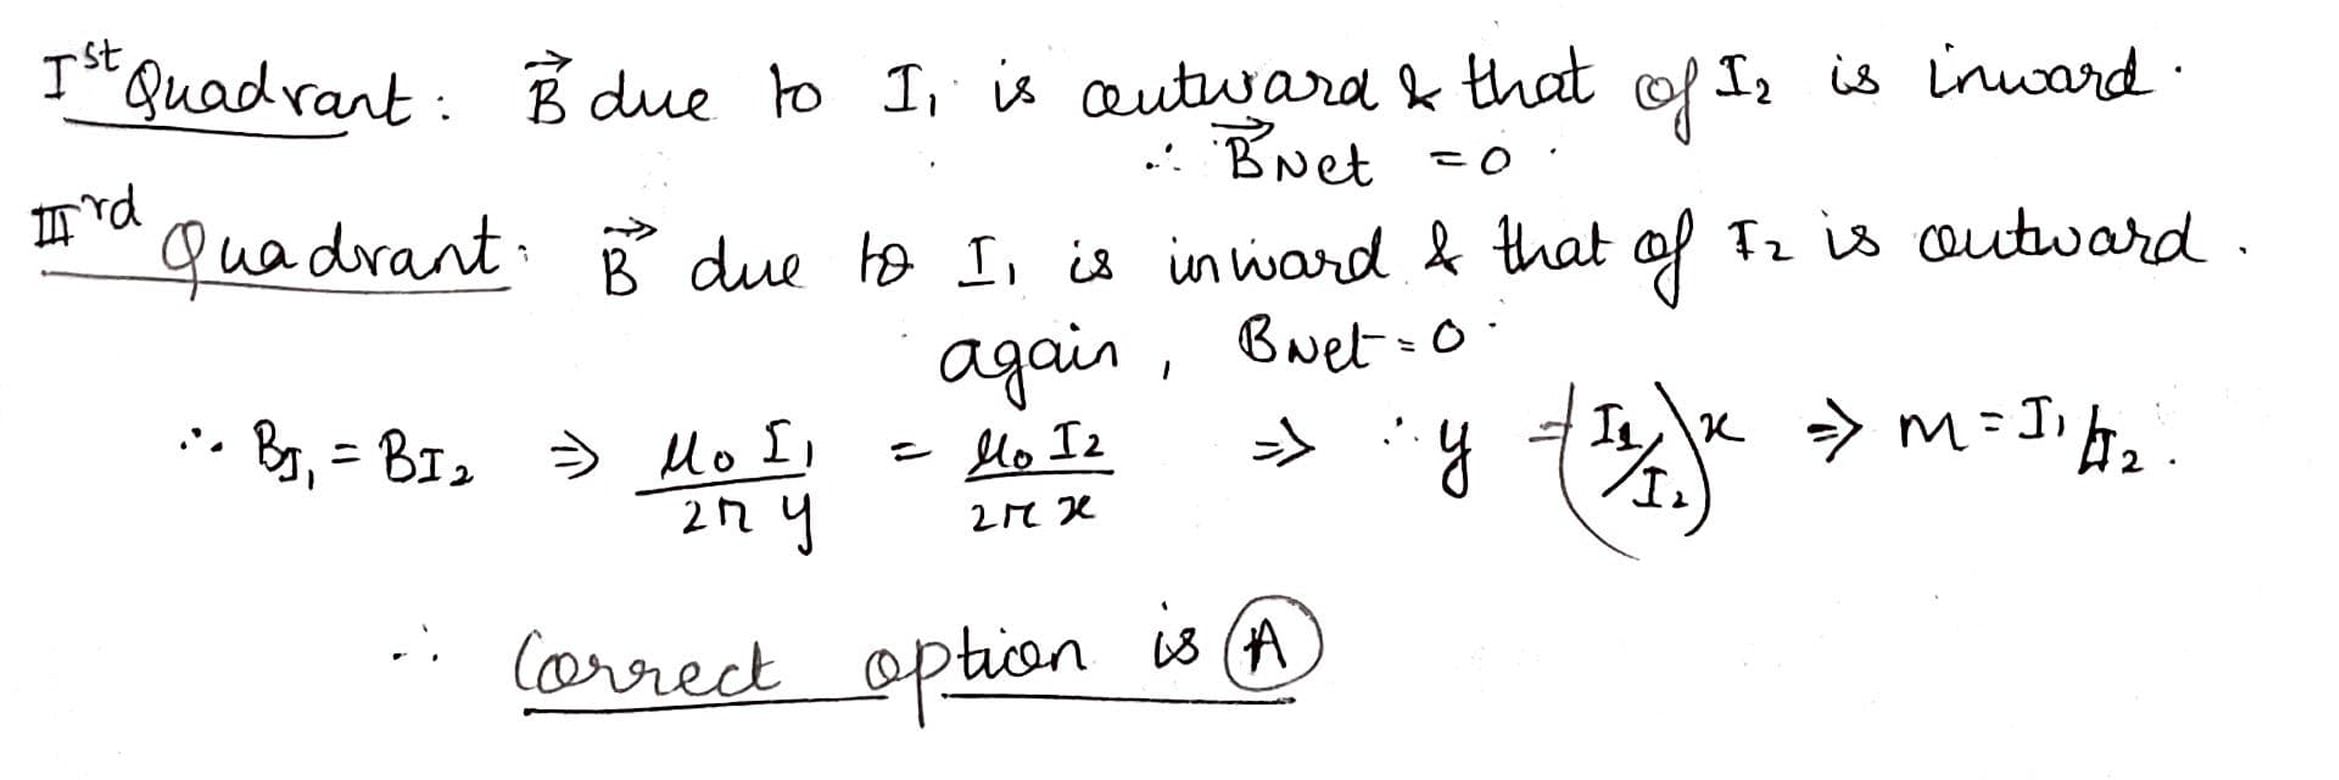 Iˢᵗ Quadrant: B⃗ due to I₁ is outward & that of I₂ is inward.
∴ B⃗Net = 0.
IIIʳᵈ Quadrant: B⃗ due to I₁ is inward & that of I₂ is outward.
again, BNet = 0.
∴ B_I₁ = B_I₂ ⇒ μ₀ I₁ / 2π y = μ₀ I₂ / 2π x ⇒ ∴ y = (I₁/I₂) x ⇒ m = I₁/I₂.
∴ Correct option is (A)